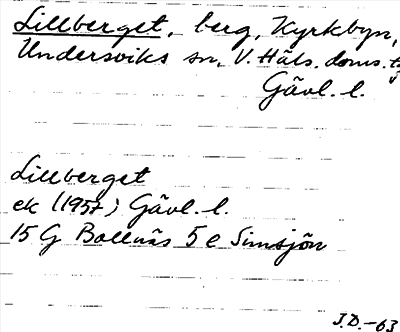 Lillberget, berg, Kyrkbyn,
Undersviks sn, V. Häls. doms. tg
Gävl. l.
Lillberget
ek (1957) Gävl. l.
15 G Bollnäs 5 e Simsjön
J.D.-63